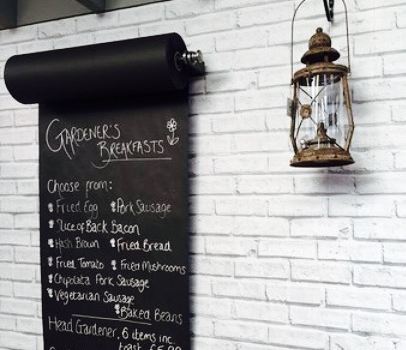 GARDENER'S
BREAKFASTS
Choose from:
Fried Egg Pork Sausage
Slice of Back Bacon
Hash Brown Fried Bread
Fried Tomato Fried Mushrooms
Chipolata Pork Sausage
Vegetarian Sausage
Baked Beans
Head Gardener, 6 items inc
toast